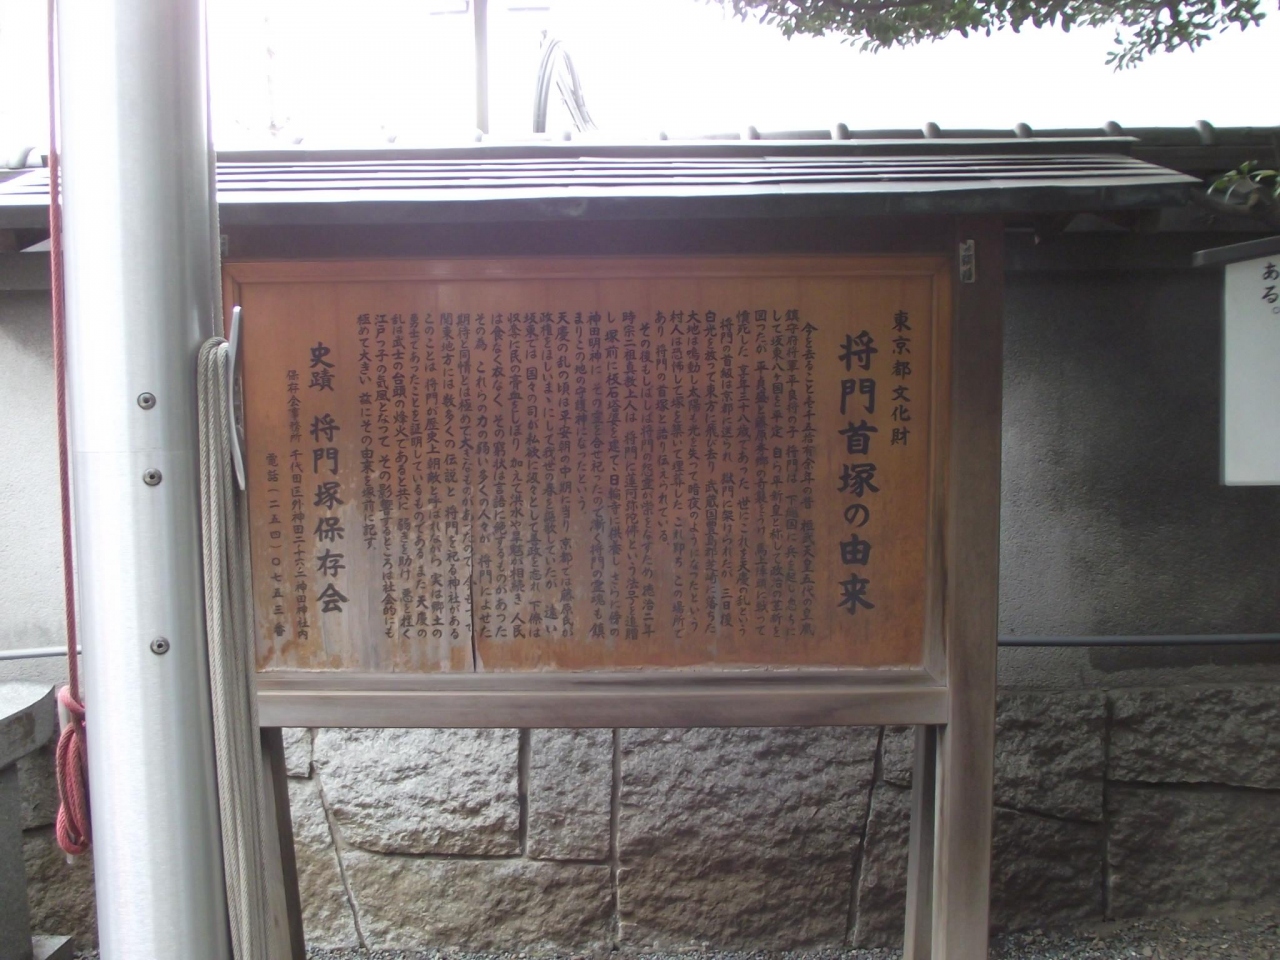 東京都文化財
将門首塚の由来
今を去ること壱千五拾有余年の昔 桓武天皇五代の皇胤
鎮守府将軍平良将の子 将門は 下総国に兵を起し忽ちに
して坂東八ヶ国を平定 自ら平新皇と称して政治の革新を
図ったが 平貞盛と藤原秀郷の奇襲をうけ 馬上陣頭に戦って
憤死した 享年三十八歳であった 世にこれを天慶の乱という
将門の首級は京都に送られ 獄門に架けられたが 三日後
白光を放って東方に飛び去り 武蔵国豊島郡芝崎に落ちた
大地は鳴動し太陽も光を失って暗夜のようになったという
村人は恐怖して塚を築いて埋葬した これ即ち この場所で
あり 将門の首塚と語り伝えられている。
その後もしばしば将門の怨霊が祟をなすため 徳治二年
時宗二祖真教上人は 将門に蓮阿弥陀佛という法号を追贈
し 塚前に板石塔婆を建てて日輪寺に供養し さらに傍の
神田明神に その霊を合せ祀ったので漸く将門の霊魂も鎮
まりこの地の守護神になったという。
天慶の乱の頃は平安朝の中期に当り 京都では藤原氏が
政権をほしいまゝにして我世の春を謳歌していたが 遠い
坂東では 国々の司が私欲に汲々として善政を忘れ 下僚は
収奪に民の膏血をしぼり 加えて洪水や旱魃が相続き 人民
は食なく衣なく その窮状は言語に絶するものがあった
その為 これらの力の弱い多くの人々が 将門によせた
期待と同情とは極めて大きなものがあったので 今もって
関東地方には数多くの伝説と 将門を祀る神社がある
このことは 将門が歴史上朝敵と呼ばれながら 実は郷土の
勇士であったことを証明しているものである また 天慶の
乱は武士の台頭の烽火であると共に 弱きを助け 悪を挫く
江戸っ子の気風となって その影響するところは社会的にも
極めて大きい 茲にその由来を塚前に記す。
史蹟 将門塚保存会
保存会事務所 千代田区外神田二十六ノ二神田神社内
電話(二五四)〇七五三番
ある。